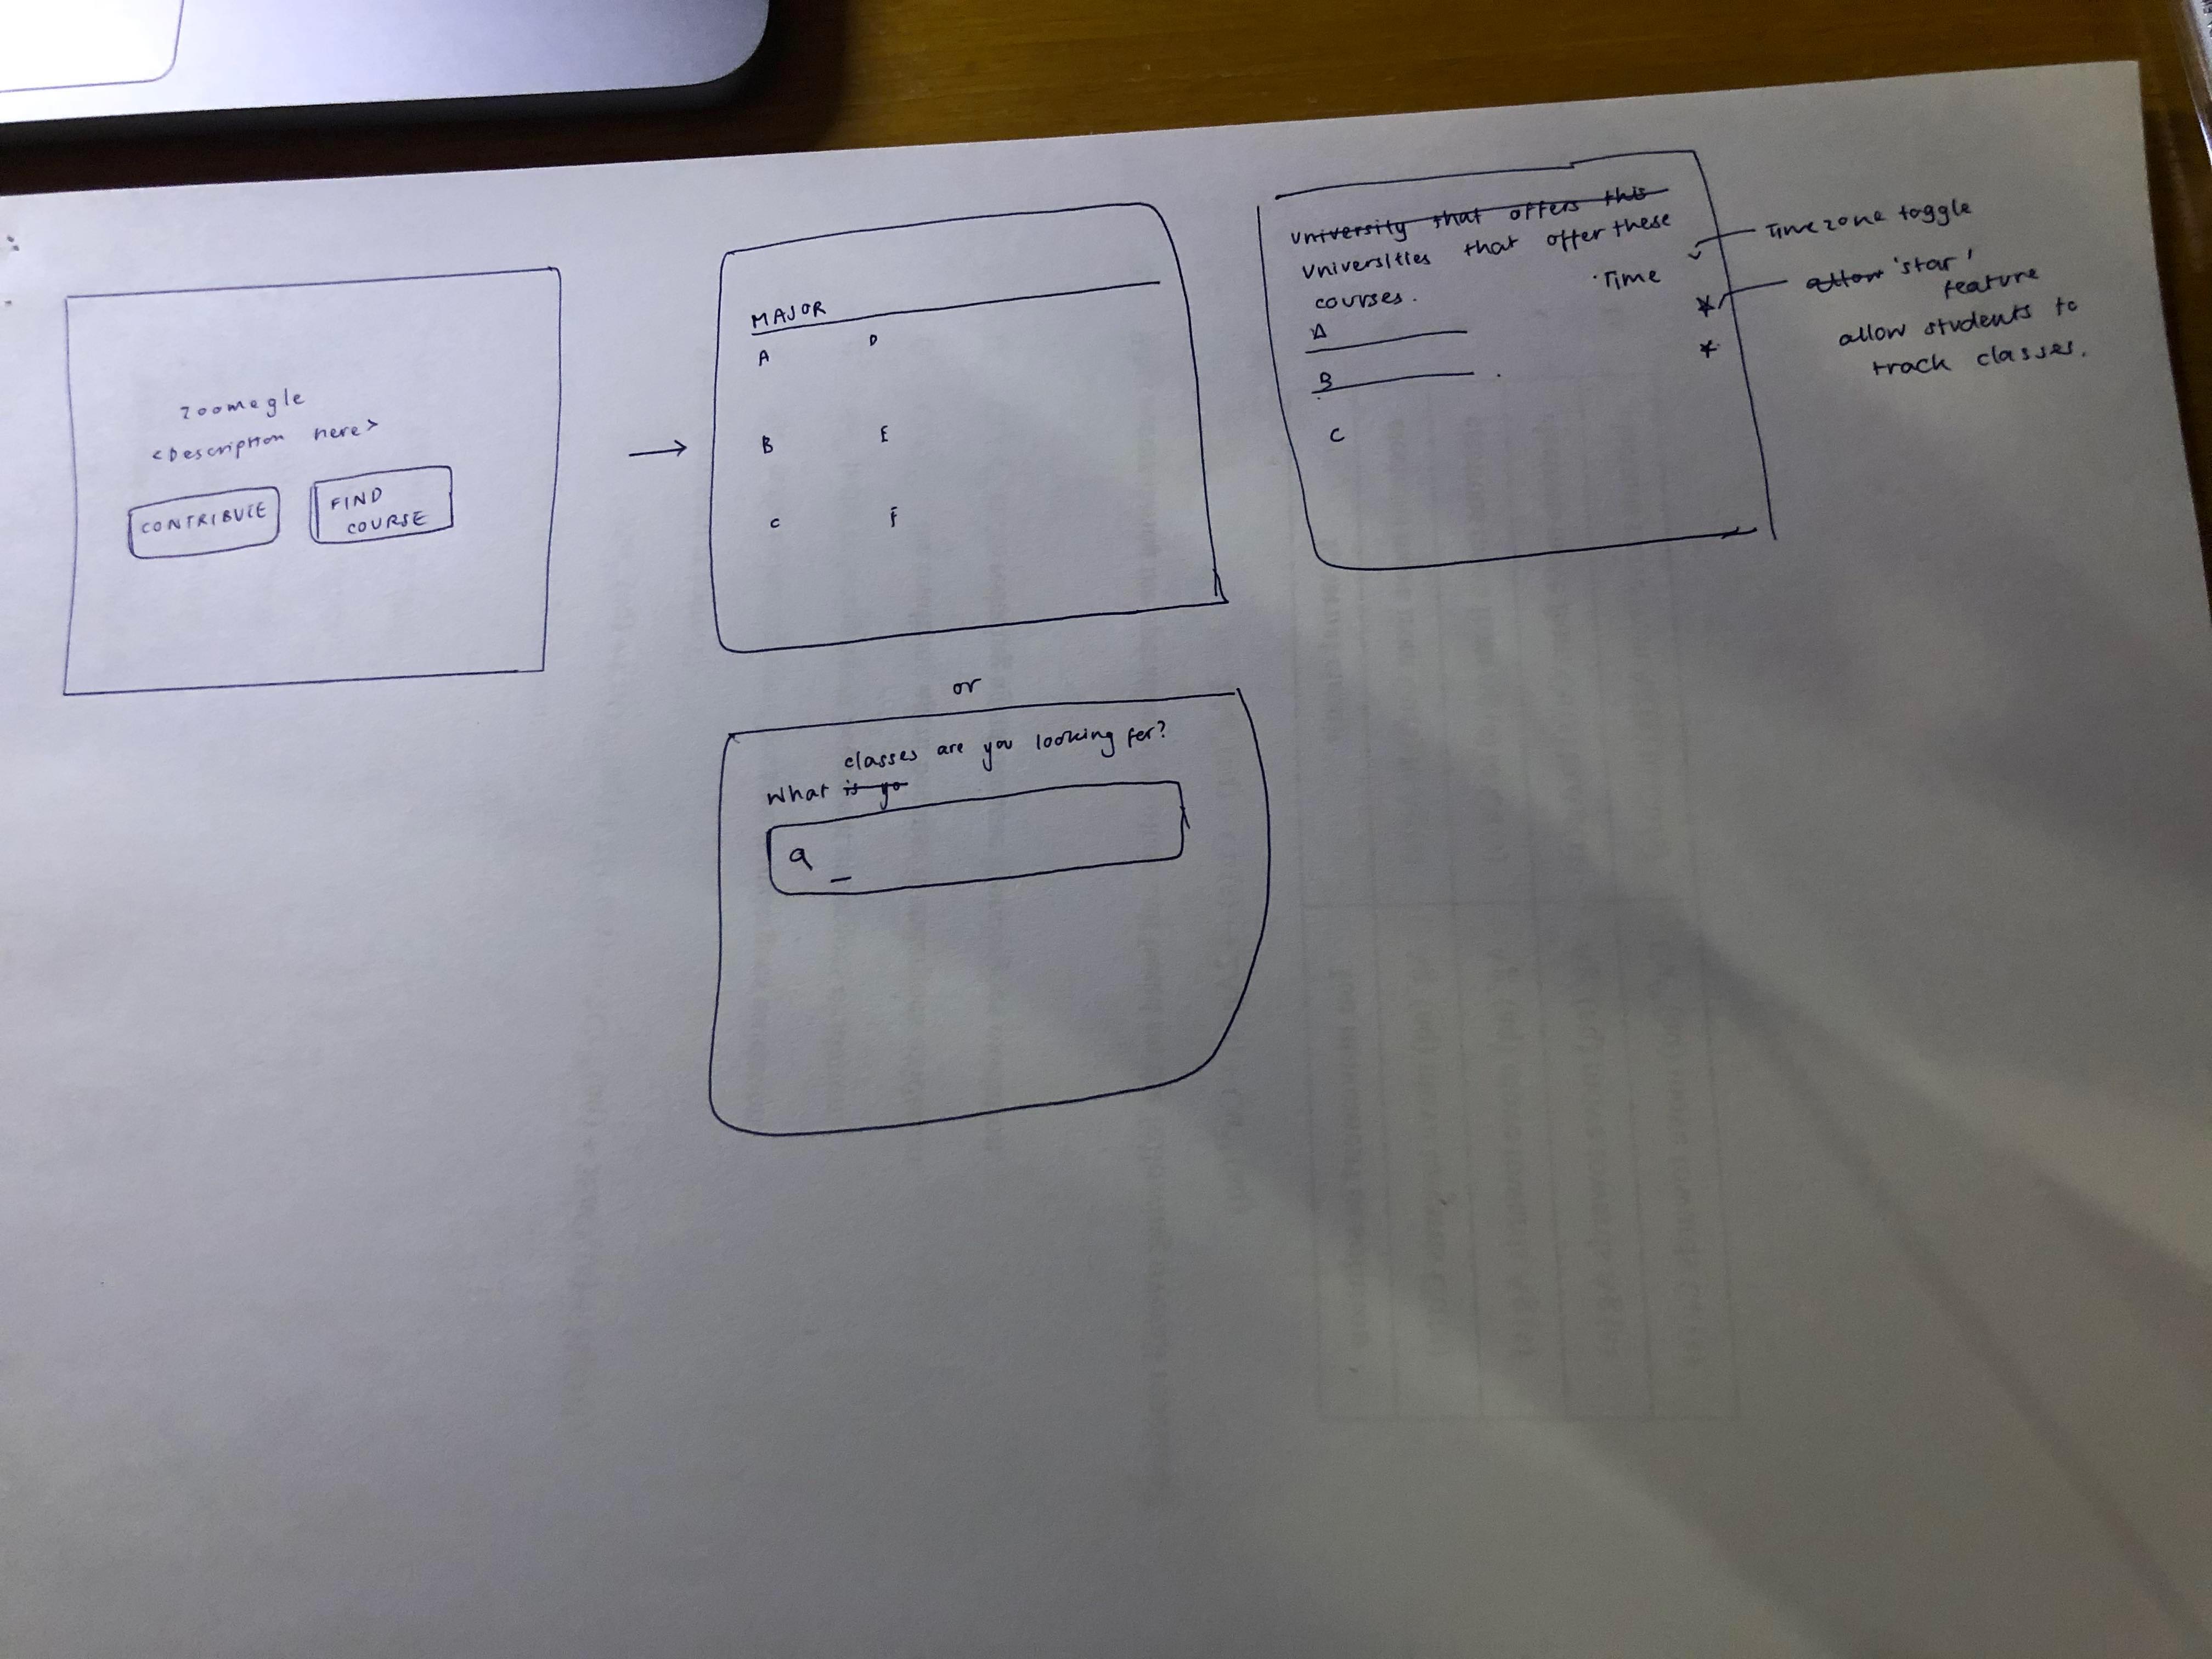 zoomegle
<Description here>
CONTRIBUTE
FIND
COURSE
MAJOR
A D
B E
C F
or
classes are you looking for?
What is yo
University that offers this
Universities that offer these
courses.
Time
A
B
C
Timezone toggle
allow 'star'
feature
allow students to
track classes.